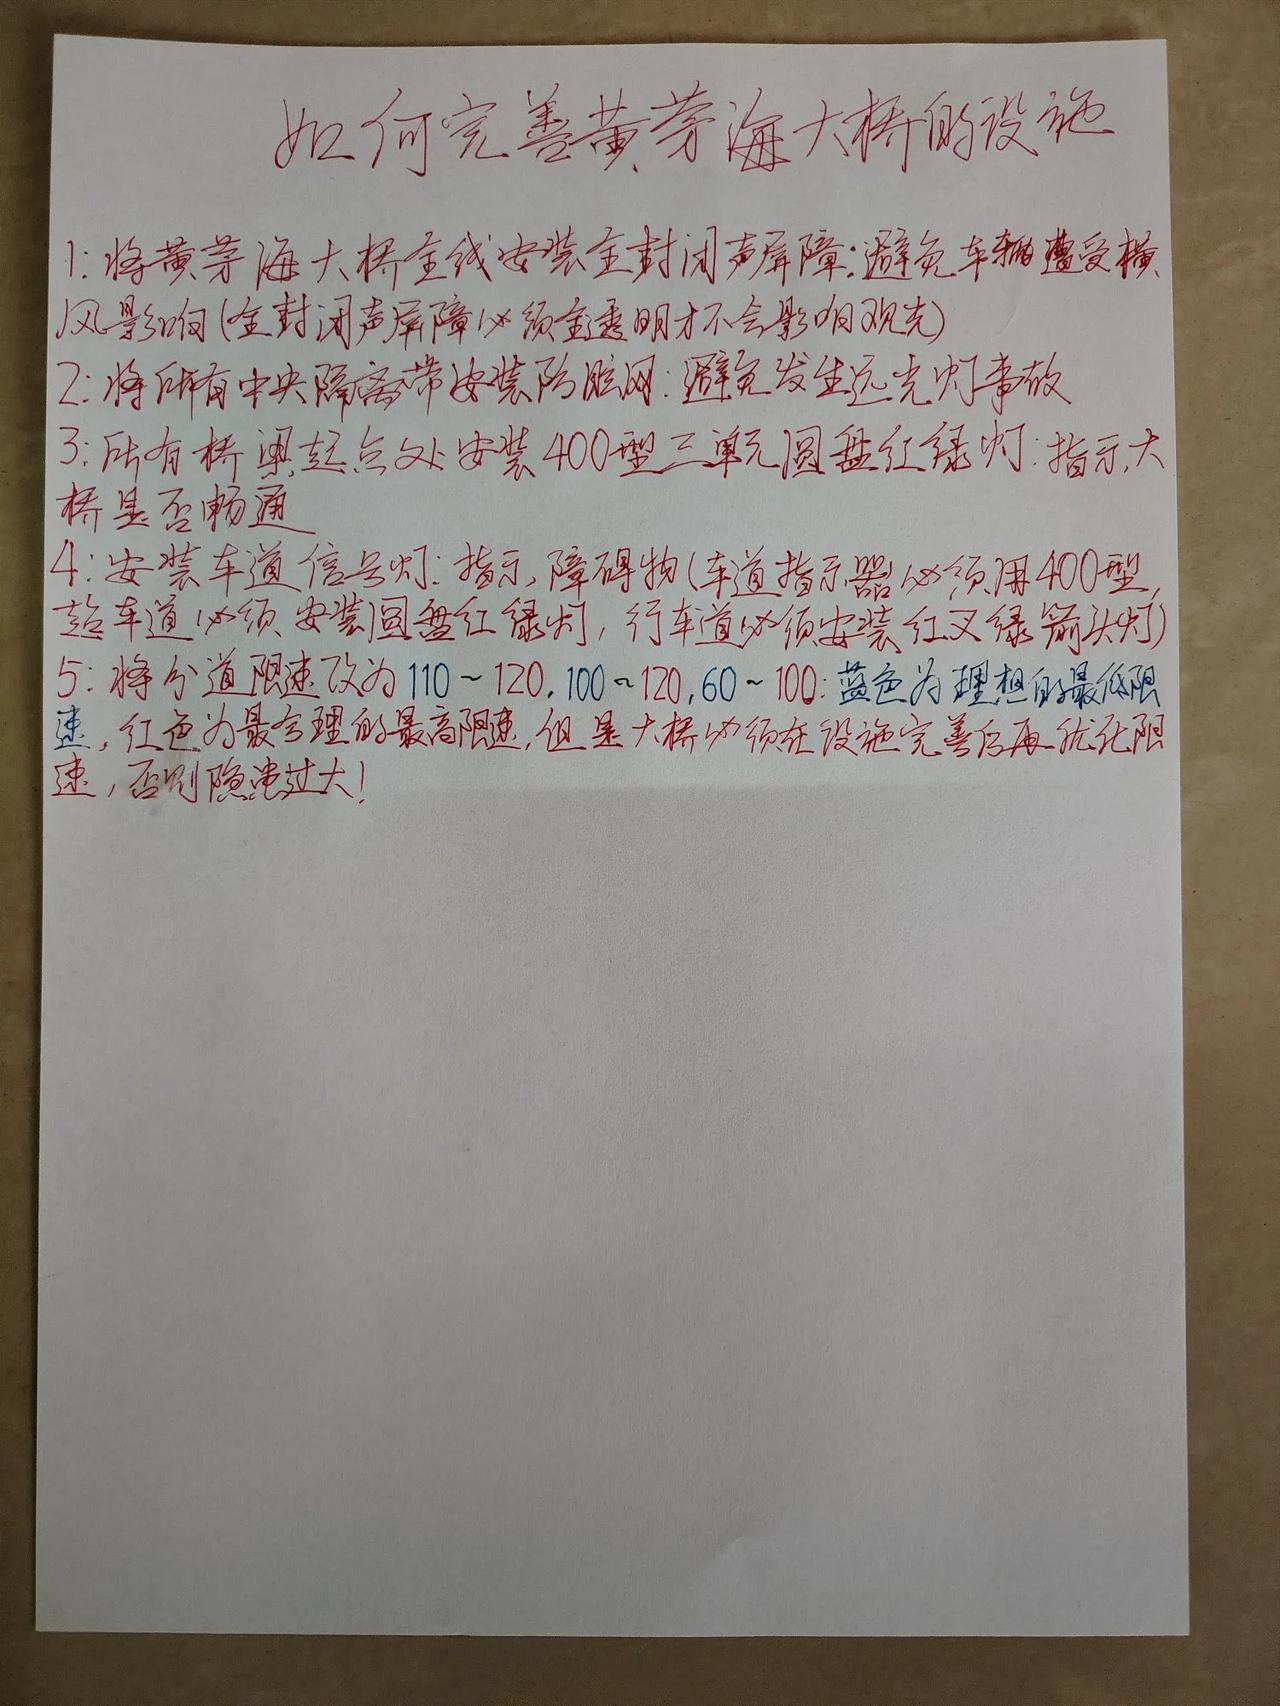 如何完善黄茅海大桥的设施
1:将黄茅海大桥全线安装全封闭声屏障:避免车辆遭受横
风影响(全封闭声屏障必须全透明才不会影响观光)
2:将所有中央隔离带安装防眩网:避免发生远光灯事故
3:所有桥梁起点处安装400型三单元圆盘红绿灯:指示大
桥是否畅通
4:安装车道信号灯:指示障碍物(车道指示器必须用400型,
超车道必须安装圆盘红绿灯,行车道必须安装红叉绿箭头灯)
5:将分道限速改为110~120,100~120,60~100:蓝色为理想的最低限
速,红色为最合理的最高限速,但是大桥必须在设施完善后再优化限
速,否则隐患过大!